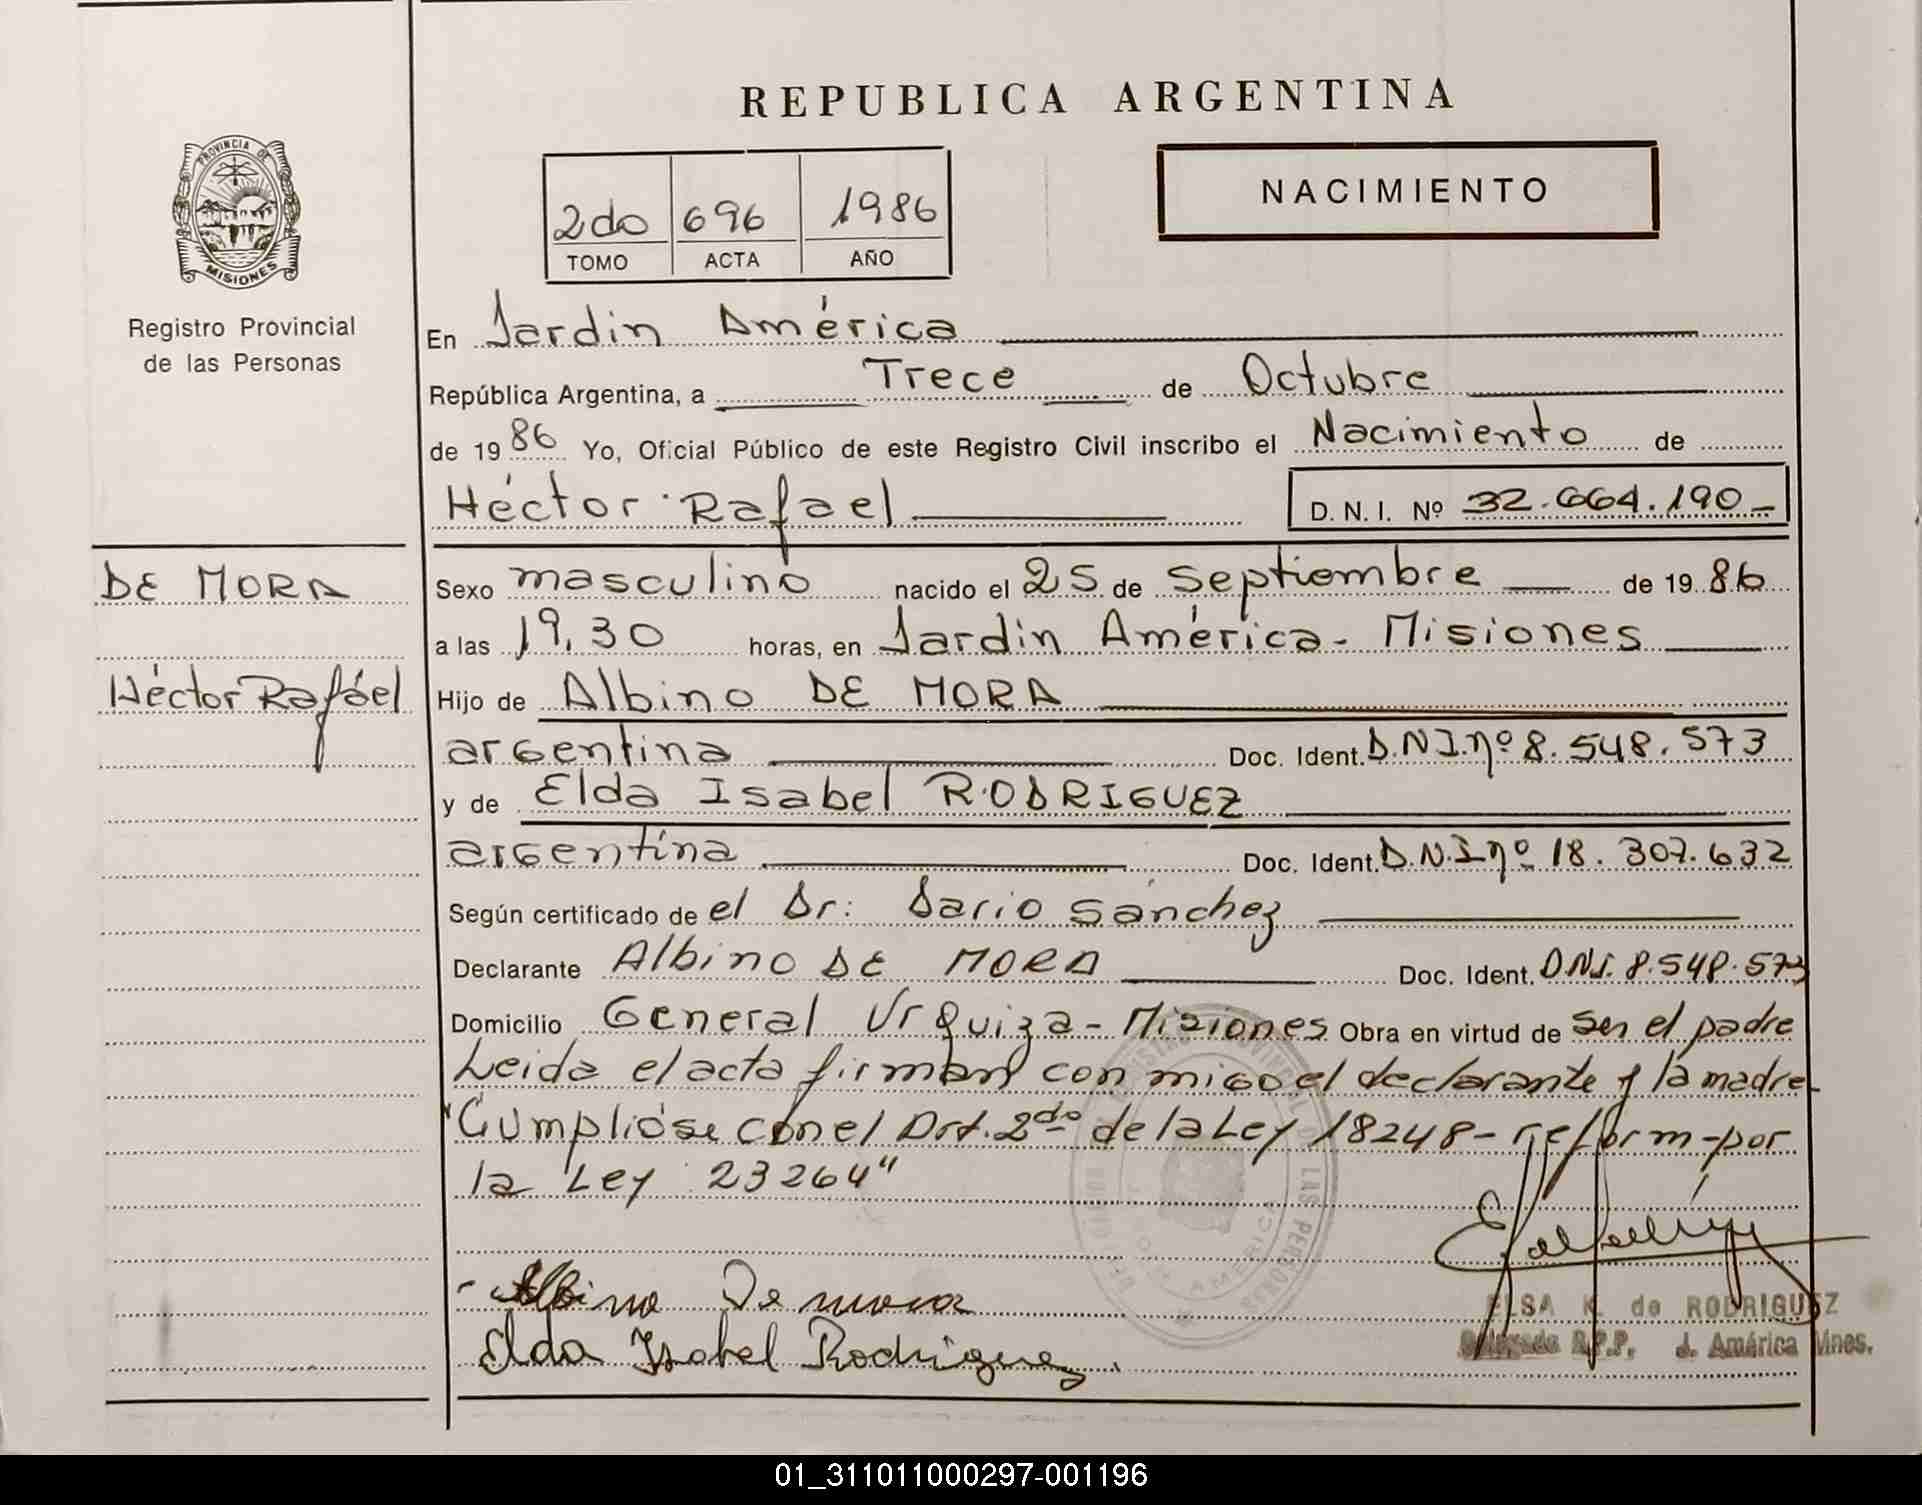 REPUBLICA ARGENTINA
PROVINCIA DE
MISIONES
Registro Provincial
de las Personas
2do 696 1986
TOMO ACTA AÑO
NACIMIENTO
En Jardin América
República Argentina, a Trece de Octubre
de 19 86 Yo, Oficial Público de este Registro Civil inscribo el Nacimiento de
Héctor Rafael D. N. I. Nº 32.664.190-
DE MORA
Héctor Rafáel
Sexo masculino nacido el 25 de Septiembre de 19 86
a las 19,30 horas, en Jardin América - Misiones
Hijo de Albino DE MORA
argentina Doc. Ident. D.N.I. nº 8.548.573
y de Elda Isabel RODRIGUEZ
argentina Doc. Ident. D.N.I nº 18.307.632
Según certificado de el Dr: Dario Sánchez
Declarante Albino DE MORA Doc. Ident. D.N.I. 8.548.573
Domicilio General Urquiza - Misiones Obra en virtud de ser el padre
Leida el acta firman con migo el declarante y la madre-
"Cumplióse con el Art. 2do de la Ley 18248- reform-por
la Ley 23264"
Albino De mora
Elda Isabel Rodriguez.
ELSA K. de RODRIGUEZ
Delegada R.P.P. J. América Mnes.
01_311011000297-001196